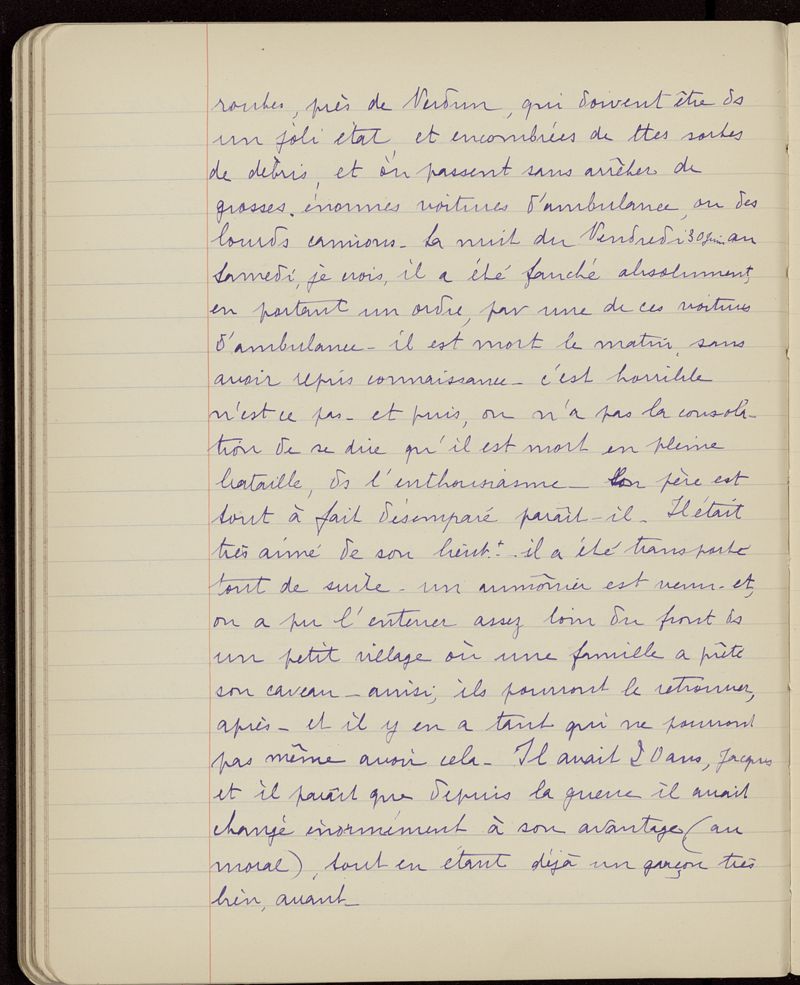 routes, près de Verdun, qui doivent être ds
un joli état, et encombrées de ttes sortes
de débris, et où passent sans arrêter de
grosses, énormes voitures d'ambulance, ou des
lourds camions - La nuit du Vendredi 30 juin au
Samedi, je crois, il a été fauché absolument,
en portant un ordre, par une de ces voitures
d'ambulance - il est mort le matin, sans
avoir repris connaissance - c'est horrible
n'est ce pas - et puis, on n'a pas la consola-
tion de se dire qu'il est mort en pleine
bataille, ds l'enthousiasme - Son père est
tout à fait désemparé paraît-il - Il était
très aimé de son lieut.t. il a été transporté
tout de suite - un aumônier est venu - et,
on a pu l'enterrer assez loin du front ds
un petit village où une famille a prêté
son caveau - ainsi, ils pourront le retrouver,
après - et il y en a tant qui ne pourront
pas même avoir cela - Il avait 20 ans, Jacques
et il paraît que depuis la guerre il avait
changé énormément à son avantage (au
moral), tout en étant déjà un garçon très
bien, avant -